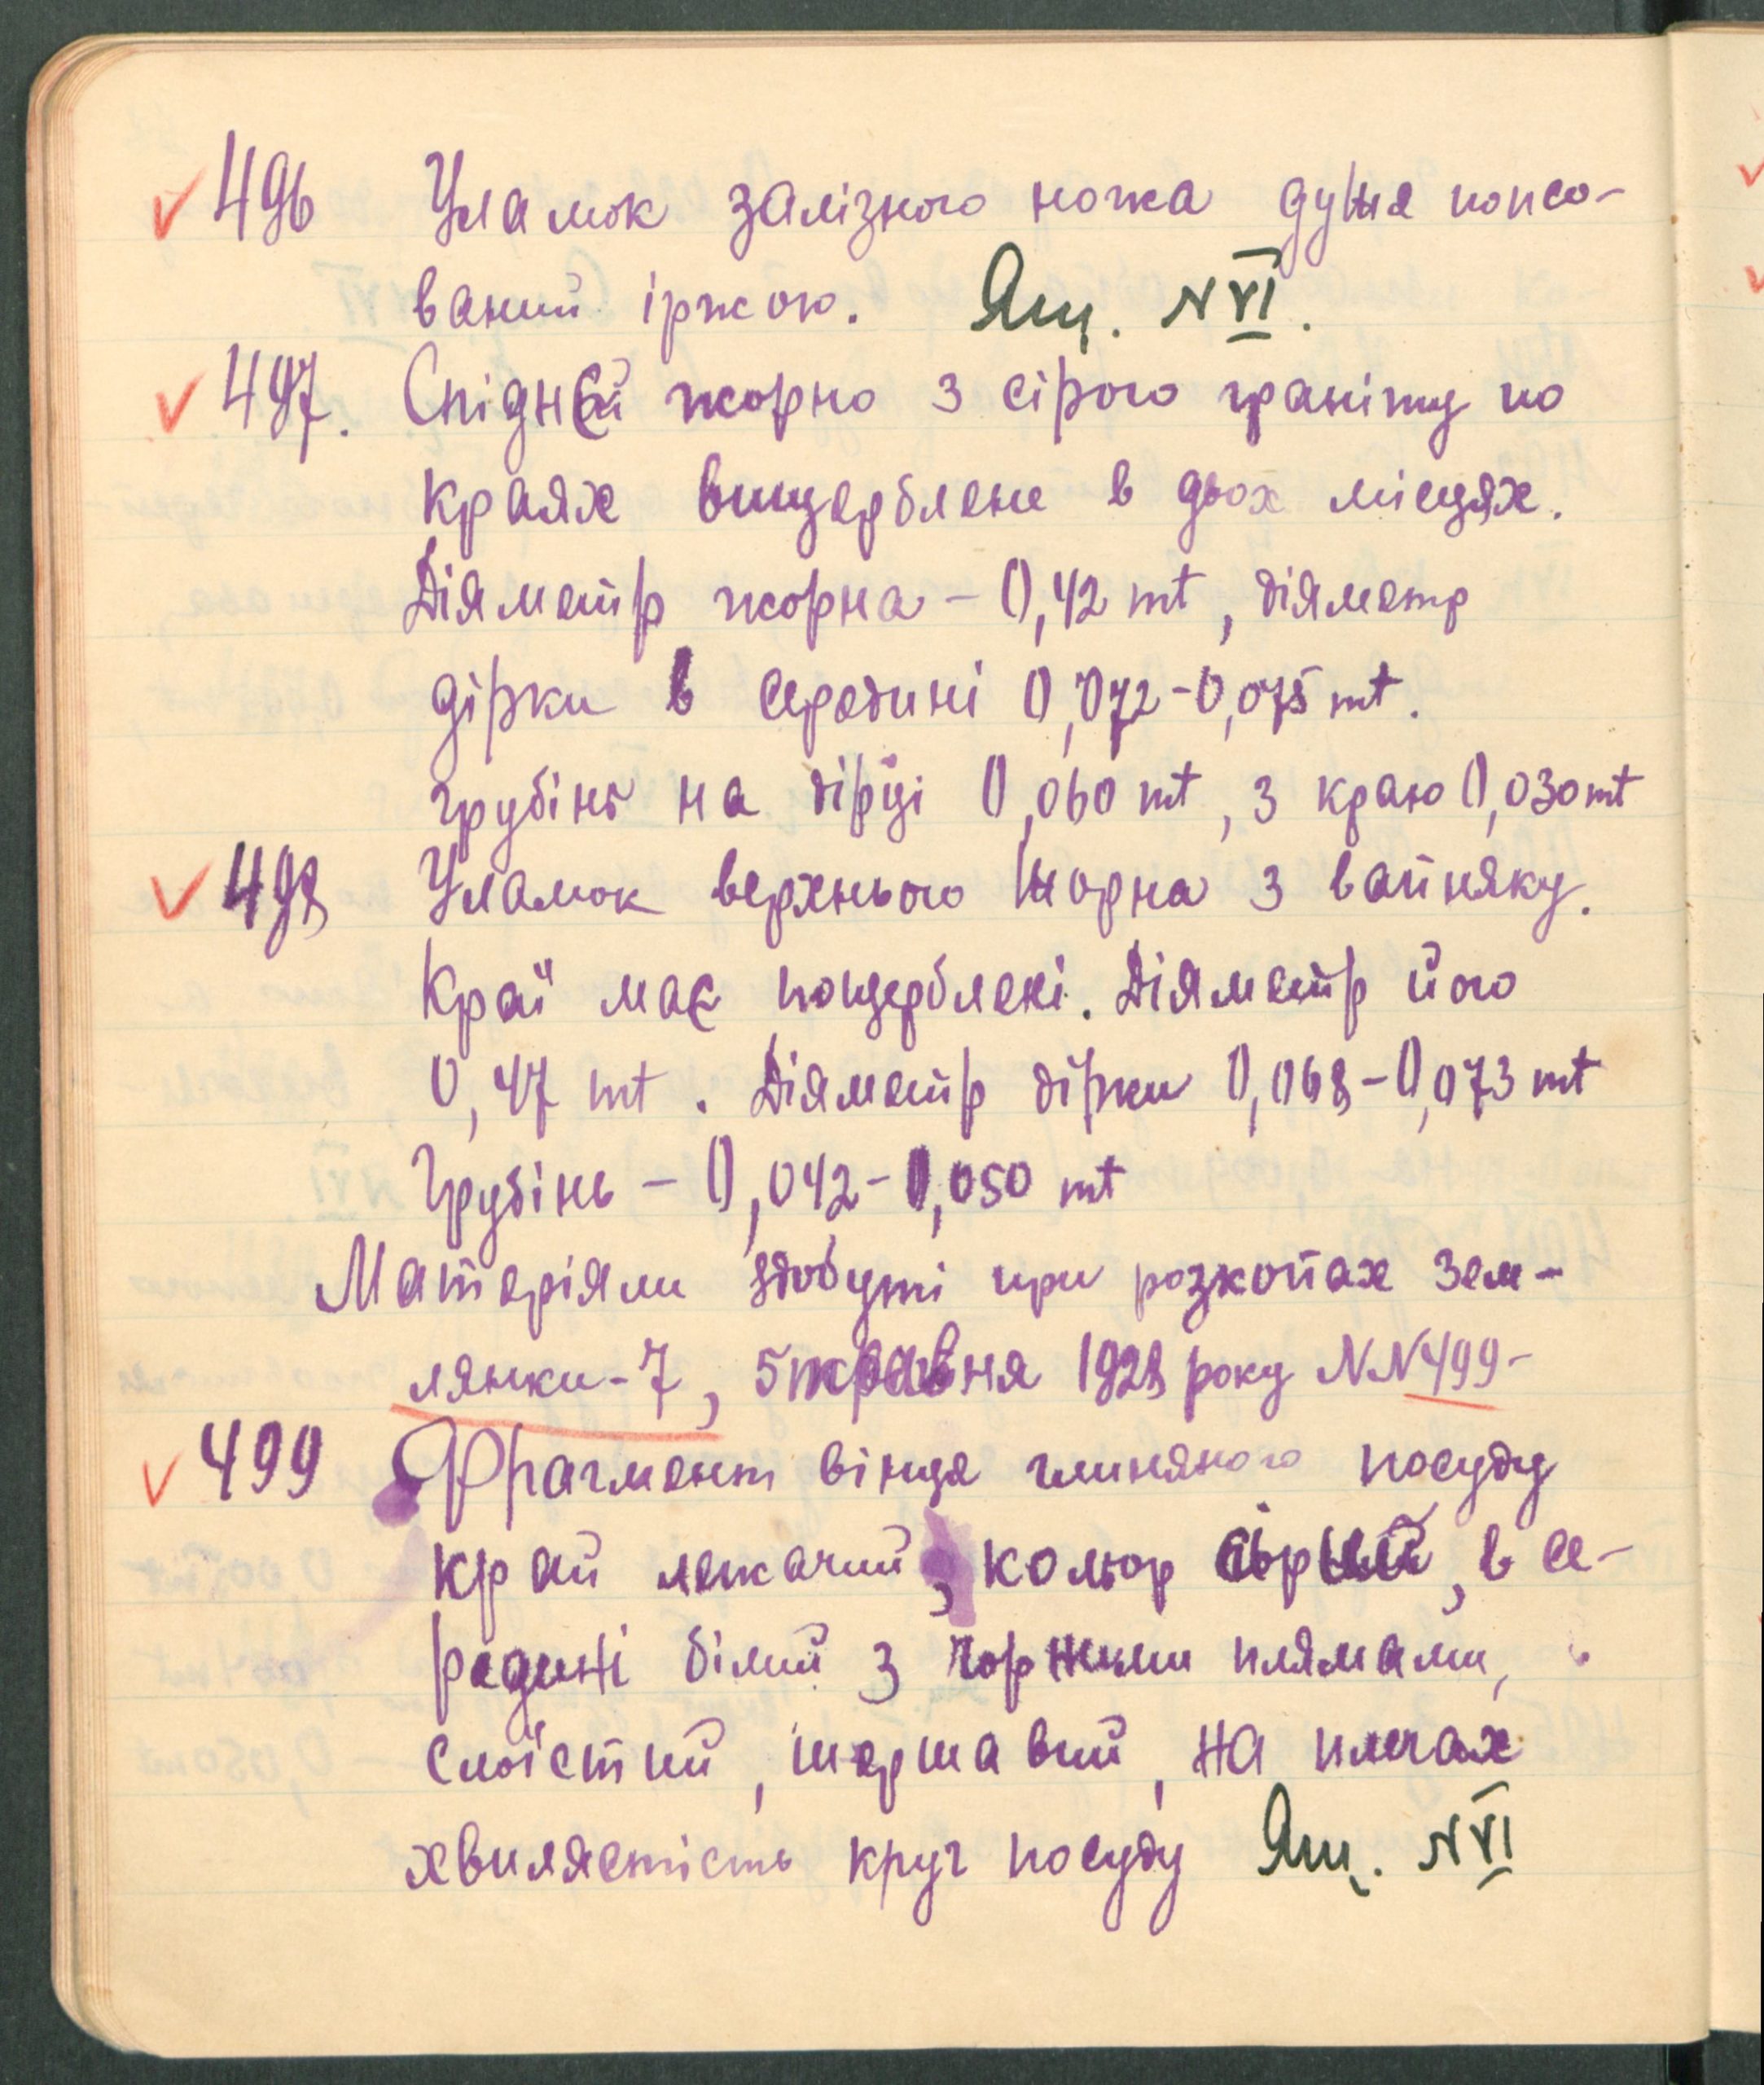 496 Уламок залізного ножа дуже попсо-
ваний іржою. Ящ. N VI.
497. Спіднєй жорно з сірого граніту по
краях вищерблене в двох місцях.
Діяметр жорна – 0,42 mt, діяметр
дірки в середині 0,072-0,075 mt.
грубінь на дірці 0,060 mt, з краю 0,030 mt
498 Уламок верхнього жорна з вапняку.
Край має пощерблені. Діяметр його
0,47 mt. Діяметр дірки 0,068-0,073 mt
Грубінь – 0,042-0,050 mt
Матеріяли здобуті при розкопах зем-
лянки-7, 5 травня 1928 року NN 499-
499 Фрагмент вінця глиняного посуду
край лежачий, кольор сірий, в се-
редині білий з чорними плямами,
слоїстий, шершавий, на плечах
хвилястість круг посуду Ящ. N VI